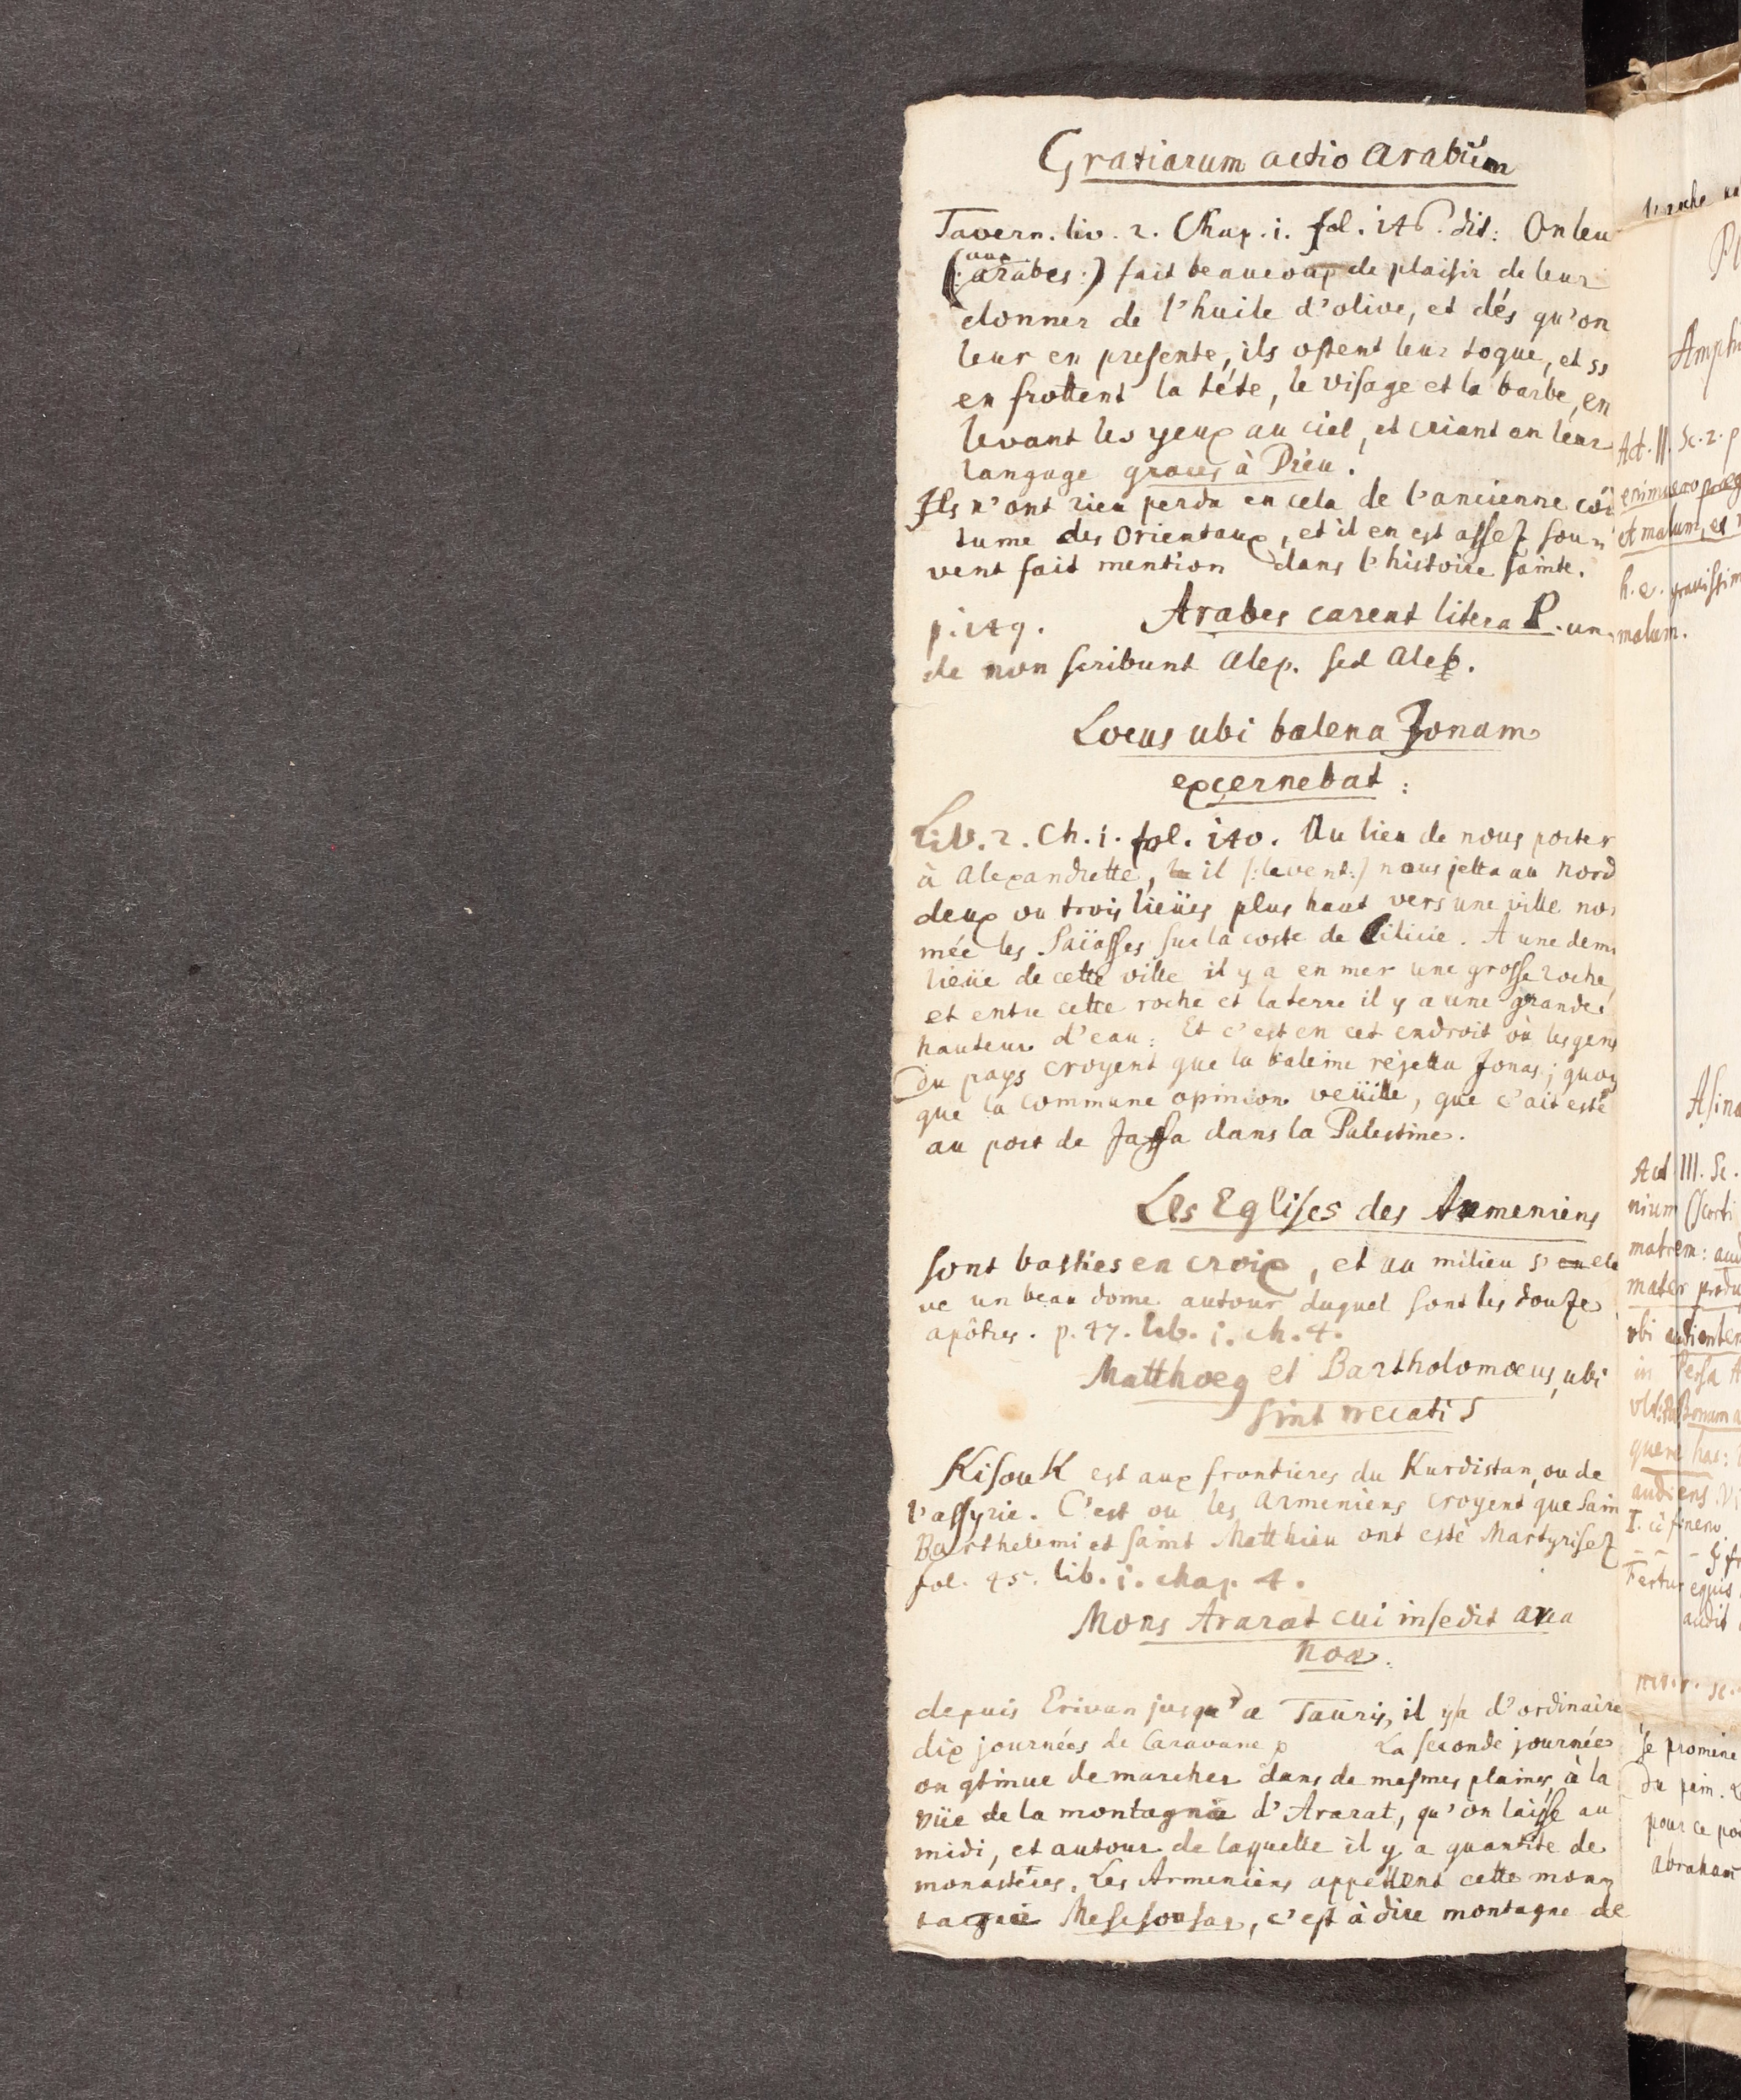 Gratiarum actio Arabum
Tavern. liv. 2. Chap. 1. fol. 146. dit: On leu
aux
(: arabes :) fait beaucoup de plaisir de leur
donner de l'huile d'olive, et dés qu'on
leur en presente, ils ostent leur toque, et s'
en frottent la téte, le visage et la barbe, en
levant les yeux au ciel, et criant en leur
langage graces à Dieu.
Ils n'ont rien perdu en cela de l'ancienne coû
tume des Orientaux, et il en est assez sou-
vent fait mention dans l'histoire sainte.
p. 149. Arabes carent litera P. un,
de non scribunt Alep. sed Aleb.
Locus ubi balena Jonam
excernebat :
Liv. 2. Ch. 1. fol. 140. Au lieu de nous porter
à Alexandrette, il (: le vent :) nous jetta au Nord
deux ou trois lieües plus haut vers une ville no
mée les Païasses sur la coste de Cilicie. A une demi
lieüe de cette ville il y a en mer une grosse roche,
et entre cette roche et la terre il y a une grande
hauteur d'eau: Et c'est en cet endroit où les gens
du pays croyent que la baleine rejetta Jonas; quoy
que la commune opinion veüille, que c'ait esté
au port de Jaffa dans la Palestine.
Les Eglises des Armeniens
sont basties en croix, et au milieu s'en ele
ve un beau dome autour duquel sont les douze
apôtres. p. 47. lib. 1. ch. 4.
Matthoeg et Bartholomœus, ubi
sint necati
Kisouk est aux frontieres du Kurdistan, ou de
l'assyrie. C'est ou les Armeniens croyent que Sain
Barthelemi et saint Matthieu ont esté Martyrisez
fol. 45. lib. 1. chap. 4.
Mons Ararat cui insedit arca
Noæ.
depuis Erivan jusqu'a Tauris, il y a d'ordinaire
dix journées de Caravane La seconde journée
on qtinue de marcher dans de mesmes plaines, à la
vüe de la montagne d'Ararat, qu'on laisse au
midi, et autour de laquelle il y a quantité de
monasteres. Les Armeniens appellent cette mon
tagne Mesesousar, c'est à dire montagne de
Amph
Act. II. Sc. 2. p
enimvero præg
et malum, es
h. e. gravissim
malum.
Asina
Act III. Sc.
nium (Scorti
matrem: aud
mater produ
vbi audienter
in Persa A
Bonum a
quere has:
audiens
Fertur equis
audit
se promene
du pein.
pour ce poi
abraham